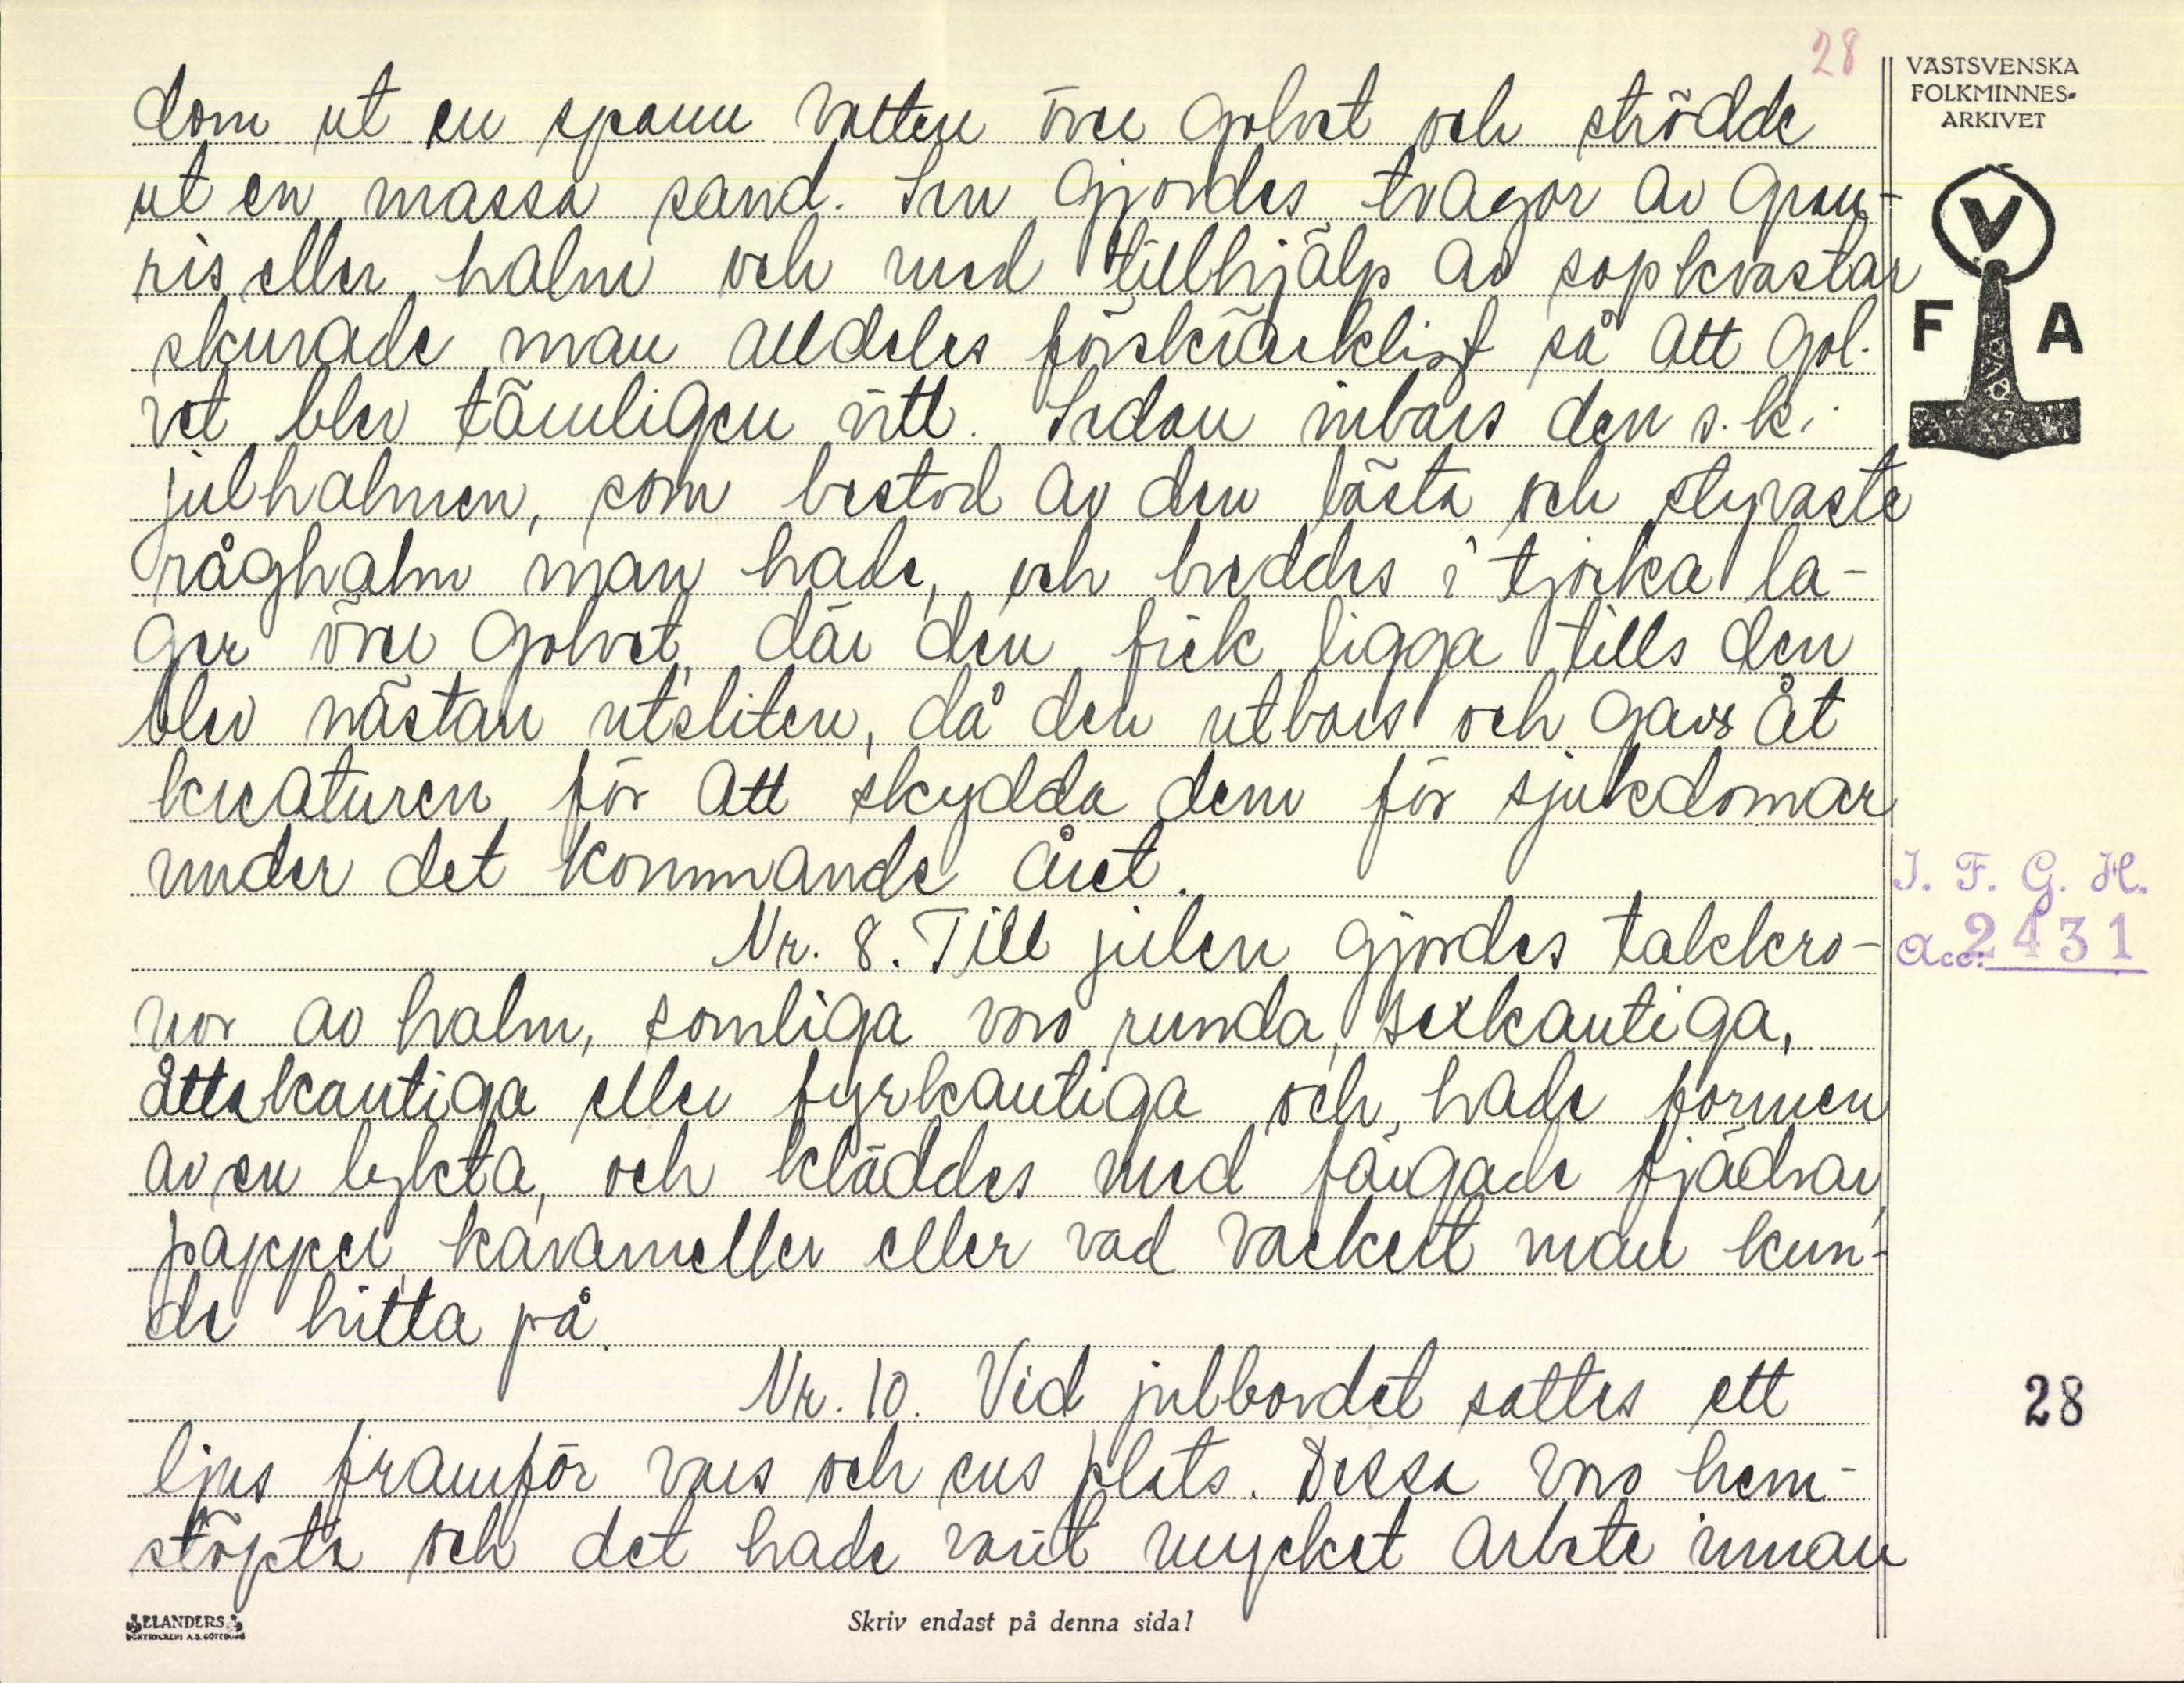 28
VÄSTSVENSKA
FOLKMINNES-
ARKIVET
V
F A
dom ut en spann vatten över golvet och strödde
ut en massa sand. Sen gjordes tvagor av gran-
ris eller halm och med tillhjälp av sopkvastar
skurade man alldeles förskräckligt så att gol-
vet blev tämligen vitt. Sedan inbars den s.k.
julhalmen, som bestod av den bästa och styvaste
råghalm man hade, och breddes i tjocka la-
ger över golvet, där den fick ligga tills den
blev nästan utsliten, då den utbars och gavs åt
kreaturen för att skydda dem för sjukdomar
under det kommande året.
Nr. 8. Till julen gjordes takkro-
nor av halm, somliga voro runda, sexkantiga,
åttakantiga eller fyrkantiga och hade formen
av en lykta, och kläddes med färgade fjädrar,
papper, karameller eller vad vackert man kun-
de hitta på.
Nr. 10. Vid julbordet sattes ett
ljus framför vars och ens plats. Dessa voro hem-
stöpta och det hade varit mycket arbete innan
I. F. G. H.
Acc. 2431
28
ELANDERS
BOKTRYCKERI A.B. GÖTEBORG
Skriv endast på denna sida!